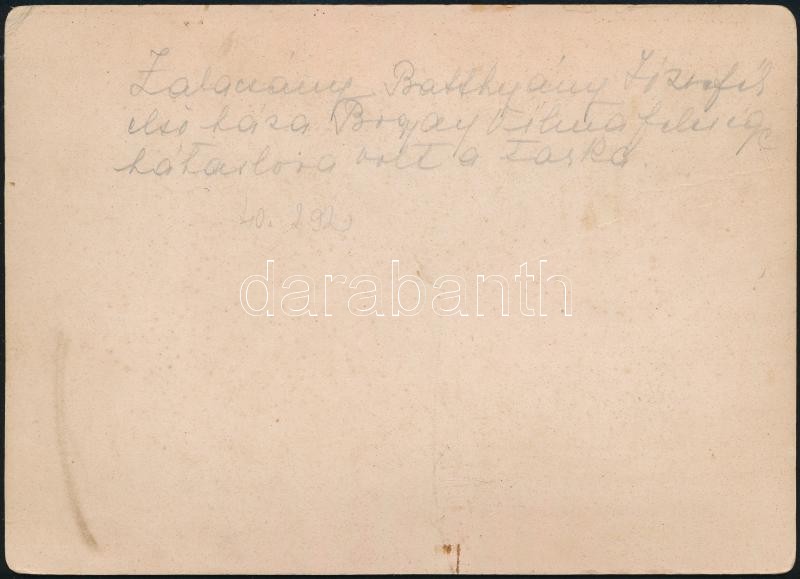 Zalacsány Batthyány Józsefék
első háza Bogyay Vilma feleség
hátaslova volt a Tarka.
40.292
darabanth